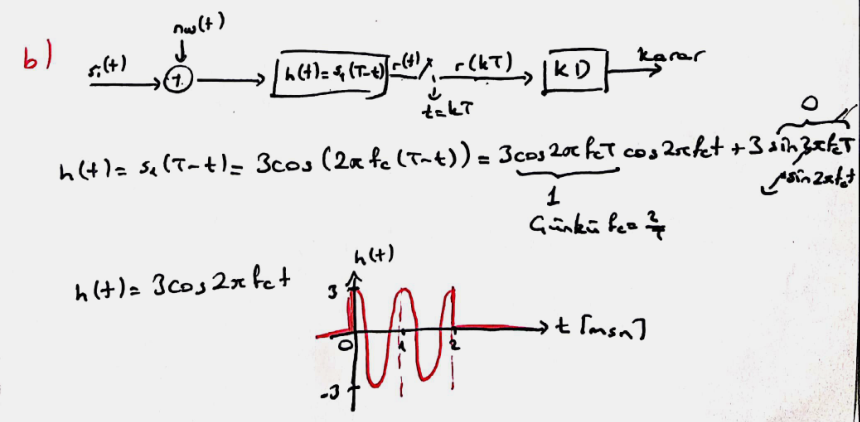 b)
nw(t)
sᵢ(t)
h(t)=s₁(T-t)
r(t)
r(kT)
KD
karar
t=kT
h(t)= s₁(T-t)= 3cos(2π fc(T-t)) = 3cos2πfcT cos2πfct + 3 sin2πfcT
sin2πfct
0
1
Çünkü fc= 2/T
h(t)= 3cos2π fct
h(t)
3
0
1
2
t [msn]
-3